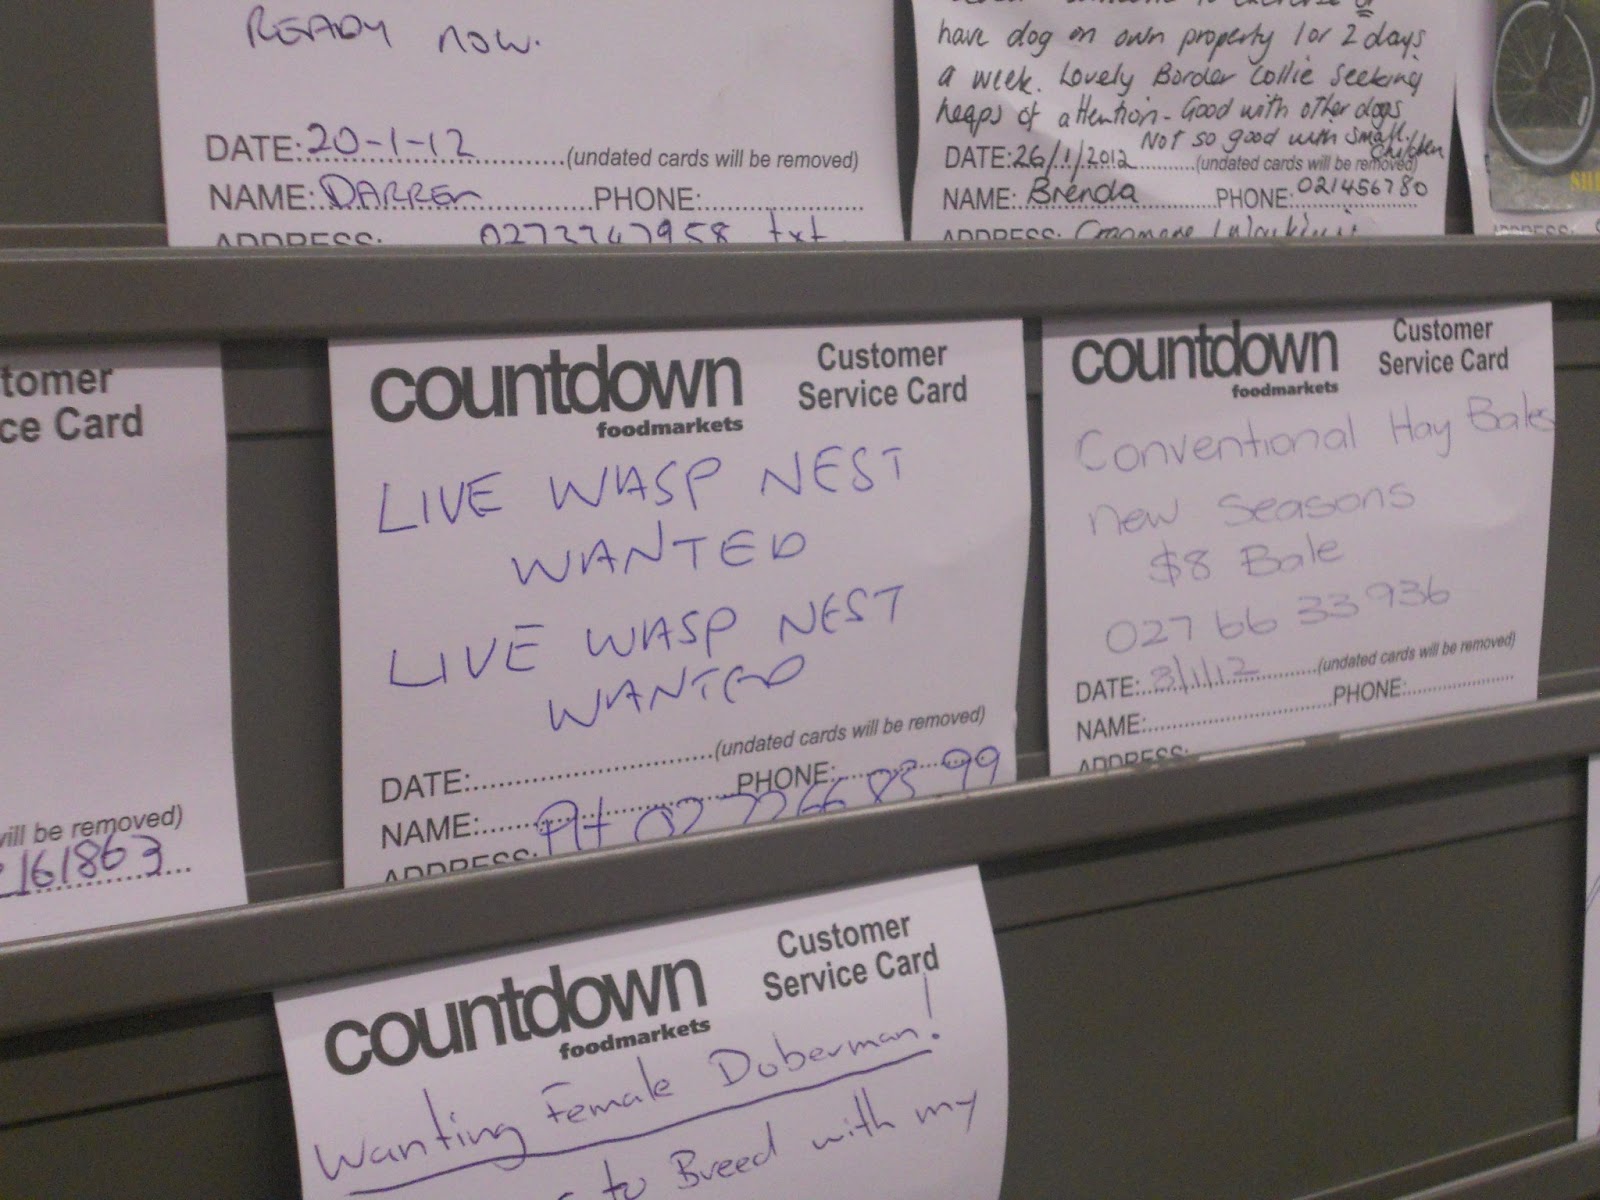 READY NOW.
DATE: 20-1-12 (undated cards will be removed)
NAME: DARREN PHONE:
ADDRESS: 02737747958 txt
have dog on own property 1 or 2 days
a week. Lovely Border Collie seeking
heaps of attention - Good with other dogs
Not so good with small
children
DATE: 26/1/2012 (undated cards will be removed)
NAME: Brenda PHONE: 021456780
ADDRESS:
tomer
ce Card
will be removed)
161863
countdown
foodmarkets
Customer
Service Card
LIVE WASP NEST
WANTED
LIVE WASP NEST
WANTED
DATE: (undated cards will be removed)
NAME: PHONE:
PH 02 7266 83 99
ADDRESS:
countdown
foodmarkets
Customer
Service Card
Conventional Hay Bales
new seasons
$8 Bale
027 66 33 936
DATE: 8/1/12 (undated cards will be removed)
NAME: PHONE:
ADDRESS:
countdown
foodmarkets
Customer
Service Card
Wanting Female Doberman!
to Breed with my